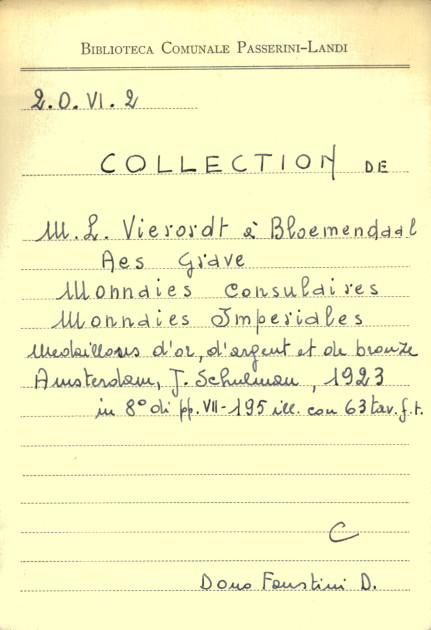 BIBLIOTECA COMUNALE PASSERINI-LANDI
2.O.VI.2
COLLECTION DE
M.L. Vierordt à Bloemendaal
Aes Grave
Monnaies Consulaires
Monnaies Imperiales
Medaillons d'or, d'argent et de bronze
Amsterdam, J. Schulman, 1923
in 8° di pp. VII-195 ill. con 63 tav. f.t.
C
Dono Faustini D.